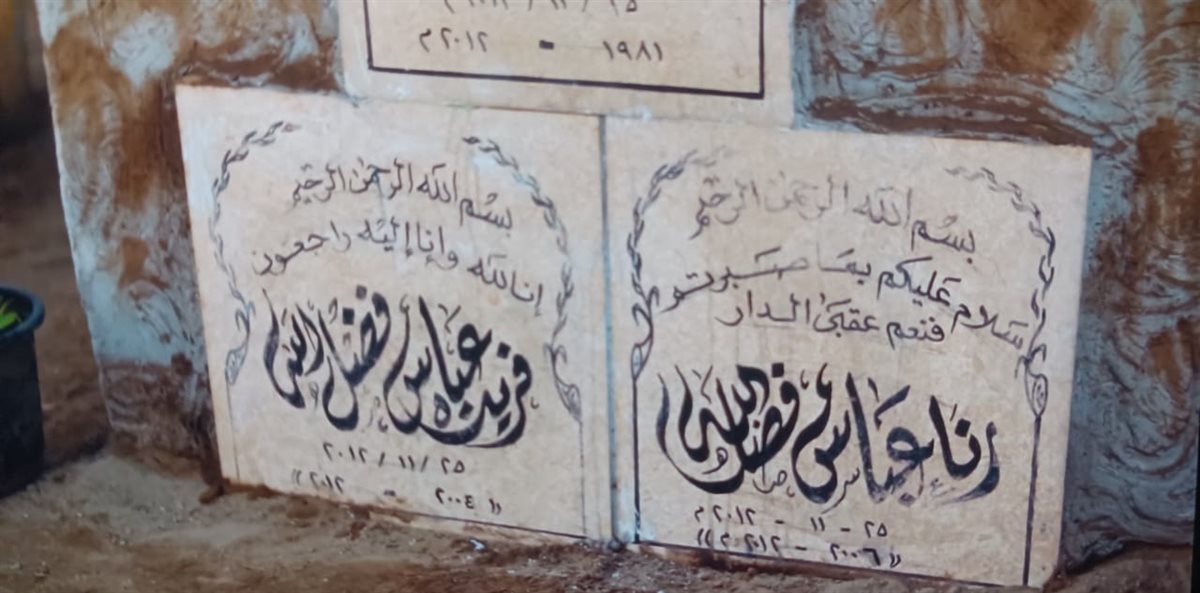 ١٩٨١ - ٢٠١٢ م
بسم الله الرحمن الرحيم
سلام عليكم بما صبرتم
فنعم عقبى الدار
رنا عباس فضل الله
٢٥ - ١١ - ٢٠١٢ م
"٢٠٠٦ - ٢٠١٢ م"
بسم الله الرحمن الرحيم
إنا لله وإنا إليه راجعون
فريد عباس فضل الله
٢٥ / ١١ / ٢٠١٢
"٢٠٠٤ - ٢٠١٢"